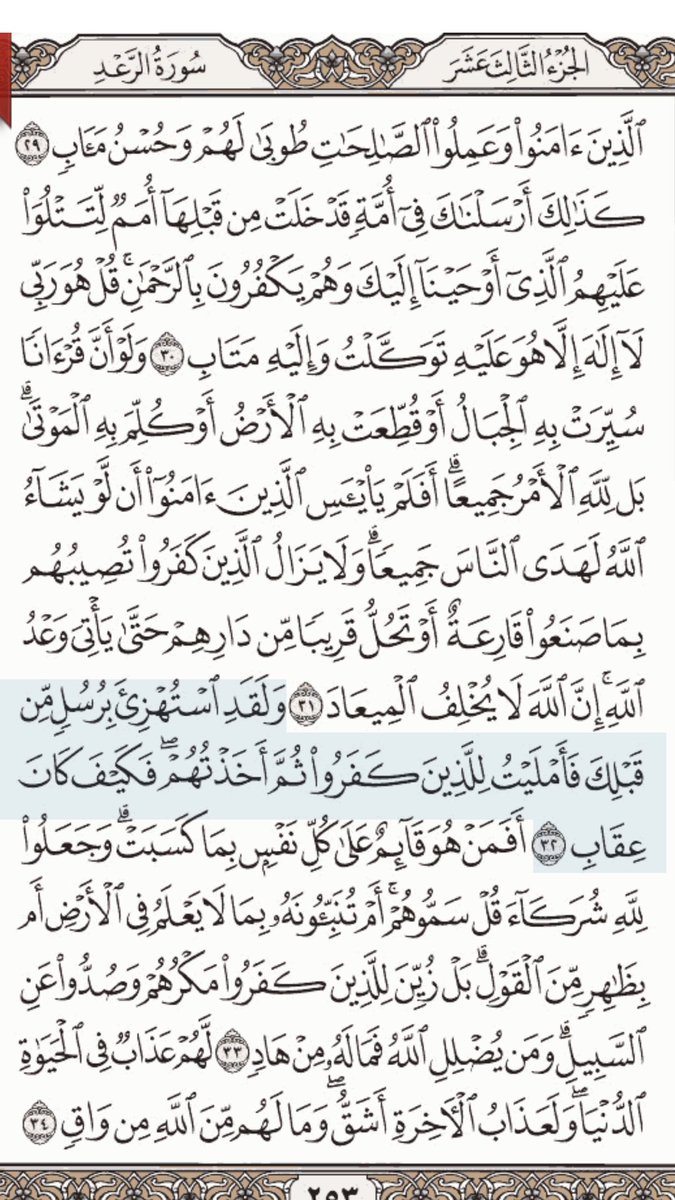 الجزء الثالث عشر
سورة الرعد
الَّذِينَ ءَامَنُوا۟ وَعَمِلُوا۟ الصَّٰلِحَٰتِ طُوبَىٰ لَهُمْ وَحُسْنُ مَـَٔابٍ ٢٩
كَذَٰلِكَ أَرْسَلْنَٰكَ فِىٓ أُمَّةٍ قَدْ خَلَتْ مِن قَبْلِهَآ أُمَمٌ لِّتَتْلُوَا۟
عَلَيْهِمُ الَّذِىٓ أَوْحَيْنَآ إِلَيْكَ وَهُمْ يَكْفُرُونَ بِالرَّحْمَٰنِ ۚ قُلْ هُوَ رَبِّى
لَآ إِلَٰهَ إِلَّا هُوَ عَلَيْهِ تَوَكَّلْتُ وَإِلَيْهِ مَتَابِ ٣٠ وَلَوْ أَنَّ قُرْءَانًا
سُيِّرَتْ بِهِ الْجِبَالُ أَوْ قُطِّعَتْ بِهِ الْأَرْضُ أَوْ كُلِّمَ بِهِ الْمَوْتَىٰ ۗ
بَل لِّلَّهِ الْأَمْرُ جَمِيعًا ۗ أَفَلَمْ يَا۟يْـَٔسِ الَّذِينَ ءَامَنُوٓا۟ أَن لَّوْ يَشَآءُ
اللَّهُ لَهَدَى النَّاسَ جَمِيعًا ۗ وَلَا يَزَالُ الَّذِينَ كَفَرُوا۟ تُصِيبُهُم
بِمَا صَنَعُوا۟ قَارِعَةٌ أَوْ تَحُلُّ قَرِيبًا مِّن دَارِهِمْ حَتَّىٰ يَأْتِىَ وَعْدُ
اللَّهِ ۚ إِنَّ اللَّهَ لَا يُخْلِفُ الْمِيعَادَ ٣١ وَلَقَدِ اسْتُهْزِئَ بِرُسُلٍ مِّن
قَبْلِكَ فَأَمْلَيْتُ لِلَّذِينَ كَفَرُوا۟ ثُمَّ أَخَذْتُهُمْ ۖ فَكَيْفَ كَانَ
عِقَابِ ٣٢ أَفَمَنْ هُوَ قَآئِمٌ عَلَىٰ كُلِّ نَفْسٍۭ بِمَا كَسَبَتْ ۗ وَجَعَلُوا۟
لِلَّهِ شُرَكَآءَ قُلْ سَمُّوهُمْ ۚ أَمْ تُنَبِّـُٔونَهُۥ بِمَا لَا يَعْلَمُ فِى الْأَرْضِ أَم
بِظَٰهِرٍ مِّنَ الْقَوْلِ ۗ بَلْ زُيِّنَ لِلَّذِينَ كَفَرُوا۟ مَكْرُهُمْ وَصُدُّوا۟ عَنِ
السَّبِيلِ ۗ وَمَن يُضْلِلِ اللَّهُ فَمَا لَهُۥ مِنْ هَادٍ ٣٣ لَّهُمْ عَذَابٌ فِى الْحَيَوٰةِ
الدُّنْيَا ۖ وَلَعَذَابُ الْءَاخِرَةِ أَشَقُّ ۖ وَمَا لَهُم مِّنَ اللَّهِ مِن وَاقٍ ٣٤
٢٥٣